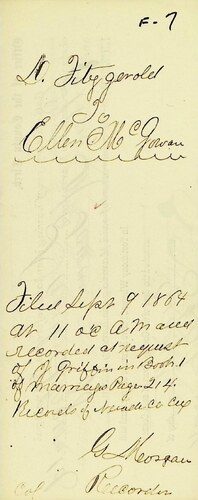 F-7
D. Fitzgerold
To
Ellen McGowan
Filed Sept 9 1864
at 11 o'c A M and
recorded at request
of J Griffin in Book 1
of Marriage Page 214
Records of Nevada Co Cal
G Morgan
Recorder